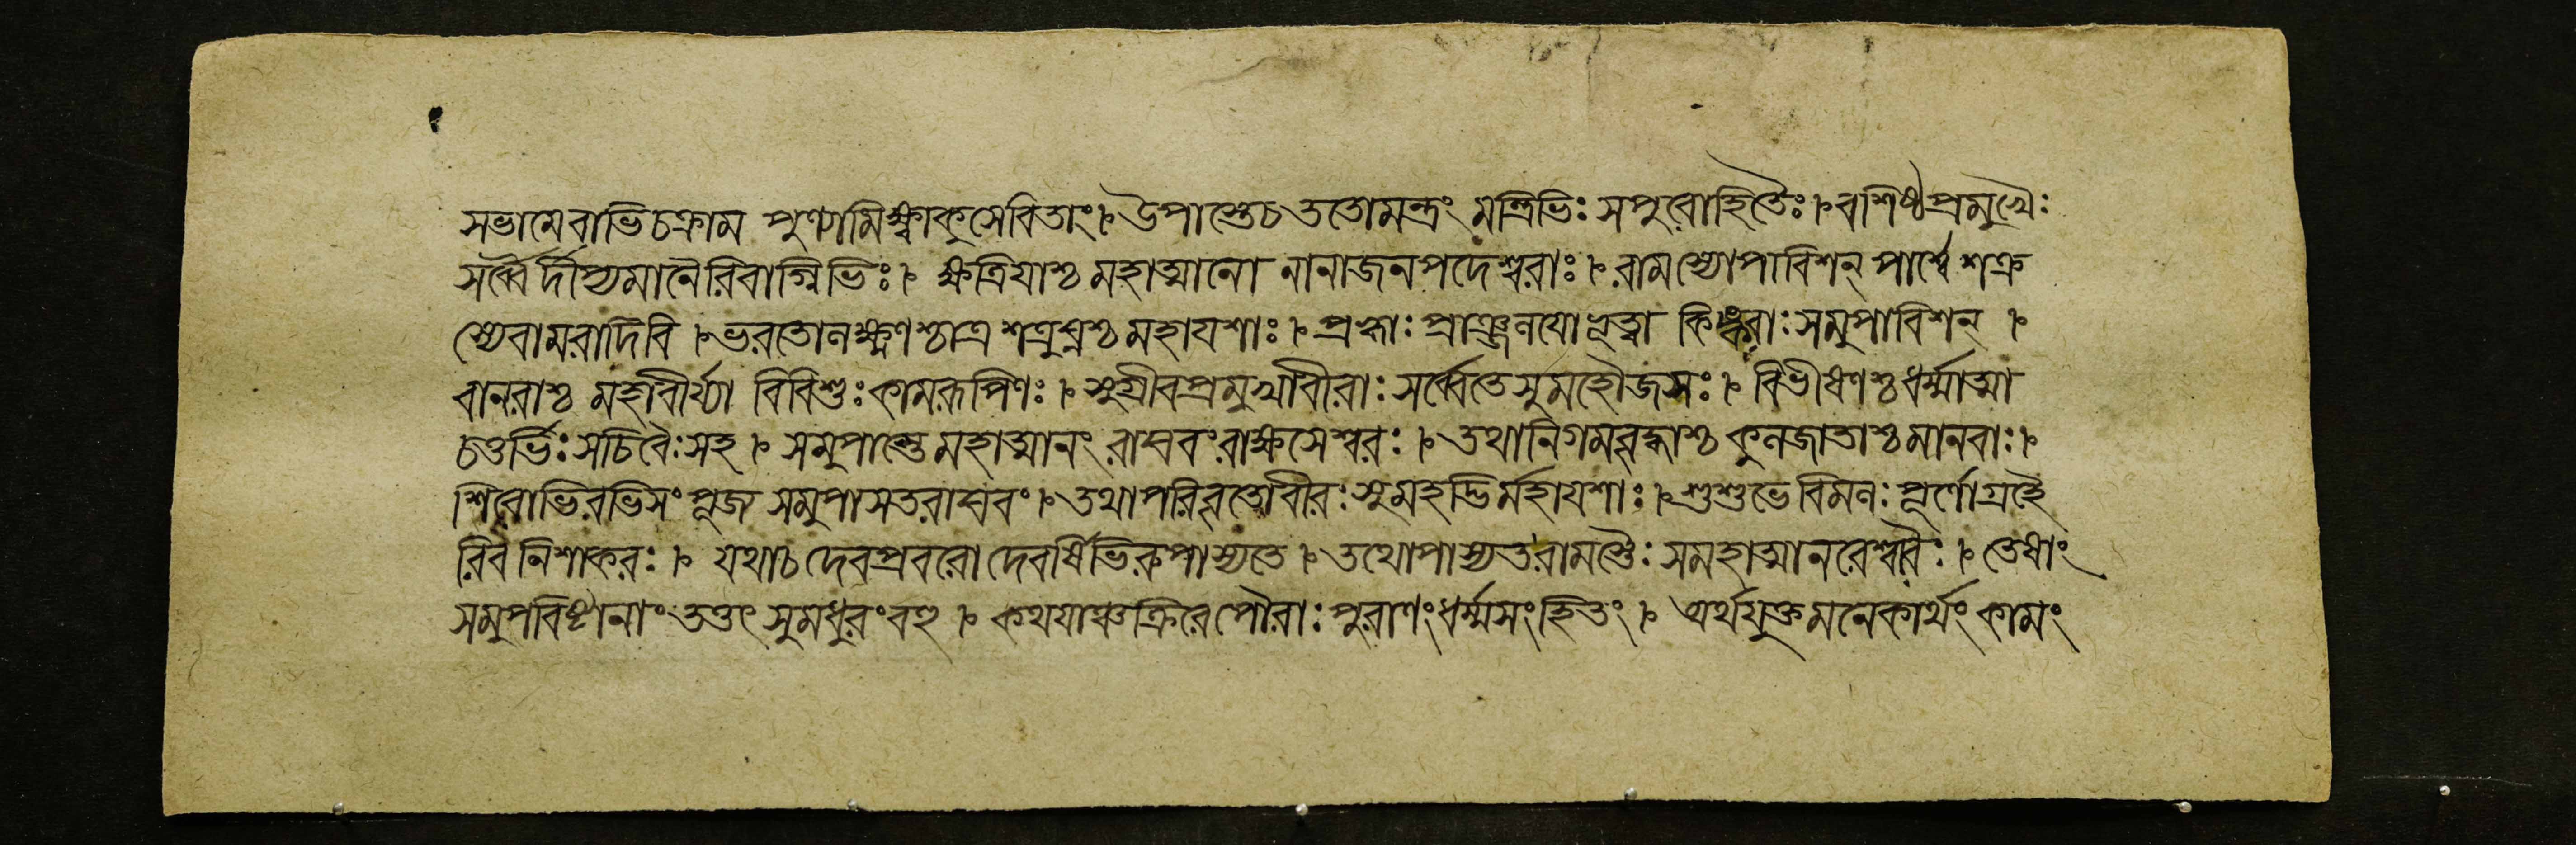 সভামেবাভিচক্রাম পুণ্যামিক্ষ্বাকুসেবিতাং।উপাস্তেচততোমন্ত্রং মন্ত্রিভিঃ সপুরোহিতৈঃ।বশিষ্ঠপ্রমুখৈঃ
সর্ব্বৈর্দীপ্যমানৈরিবাগ্নিভিঃ। ক্ষত্রিয়াশ্চ মহাত্মানো নানাজনপদেশ্বরাঃ।রামস্যোপাবিশন্ পার্শ্বে শক্র
স্যেবামরাদিবি।ভরতোলক্ষ্মণশ্চাত্র শত্রুঘ্নশ্চ মহাযশাঃ। প্রহ্বাঃ প্রাঞ্জলয়োভূত্বা কিঙ্করাঃসমুপাবিশন্।
বানরাশ্চ মহাবীর্য্যা বিবিশুঃকামরূপিণঃ। সুগ্রীবপ্রমুখাবীরাঃ সর্ব্বেতেসুমহৌজসঃ। বিভীষণশ্চধর্ম্মাত্মা
চতুর্ভিঃসচিবৈঃসহ। সমুপাস্তেমহাত্মানং রাঘবংরাক্ষসেশ্বরঃ। তথানিগমবৃদ্ধাশ্চ কুলজাতাশ্চমানবাঃ।
শিরোভিরভিসংপূজ্য সমুপাসতরাঘবং।তথাপরিবৃতোবীরঃসুমহদ্ভির্মহাযশাঃ।শুশুভেবিমলঃপূর্ণোগ্রহৈ
রিবনিশাকরঃ। যথাচদেবপ্রবরোদেবর্ষিভিরুপাস্যতে।তথোপাস্যতরামস্তৈঃ সমহাত্মানরেশ্বরৈঃ। তেষাং
সমুপবিষ্টানাংততৎ সুমধুরংবহু। কথয়াঞ্চক্রিরেপৌরাঃ পুরাণংধর্ম্মসংহিতং। অর্থযুক্তমনেকার্থং কামং